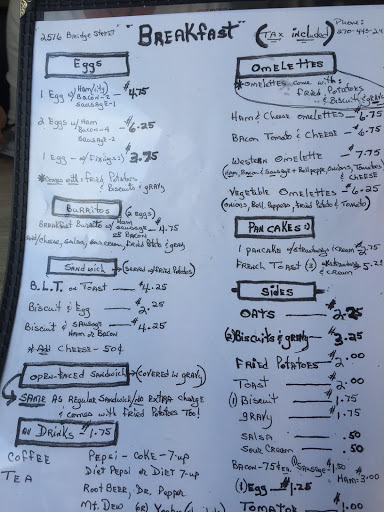 2576 Bridge Street
"Breakfast"
(Tax included)
Phone:
870-445-24
Eggs
1 Egg w/ Ham(1/4)
Bacon-2
Sausage-1
- $4.75
2 Eggs w/ Ham
Bacon-4
Sausage-2
- $6.25
1 Egg - w/Fixings:) - $3.75
*Comes with: Fried Potatoes
& Biscuits & gravy
Burritos (2 eggs)
Breakfast Burrito w/ Ham
Sausage
or Bacon
- 4.75
w/cheese, salsa, sour cream, fried potato & gravy
Sandwich → (served w/Fried Potatoes)
B.L.T. on Toast - $4.25
Biscuit & Egg - $2.25
Biscuit & Sausage
Ham or Bacon
- $4.25
*Add Cheese - 50¢
Open-Faced Sandwich → (Covered in gravy)
→ Same As Regular Sandwich/No Extra Charge
& comes with Fried Potatoes Too!
All Drinks - $1.75
Coffee Pepsi - Coke - 7-up
Tea Diet Pepsi or Diet 7-up
Root Beer, Dr. Pepper
Mt. Dew (or)
Omelettes
*Omelettes come with:
Fried Potatoes
& Biscuit & gravy
Ham & Cheese omelettes - $6.75
Bacon Tomato & Cheese - $6.75
Western Omelette - $7.75
(Ham, Bacon & Sausage + Bell pepper, Onions, Tomatoes
& Cheese
Vegetable Omelettes - $6.25
(Onions, Bell Peppers, Fried Potato & Tomato)
Pancakes :)
1 Pancake w/strawberry & cream - 2.75
French Toast (2) w/strawberry
& cream - 5.25
Sides
Oats - $2.25
(2) Biscuits & gravy - $3.25
Fried Potatoes - $2.00
Toast - $2.00
(1) Biscuit - $1.75
gravy - $1.75
Salsa - .50
Sour Cream - .50
Bacon - .75 ea. (1) Sausage $1.50
Ham - 3.00
(1) Egg - $1.25
Tomatoe - $1.00